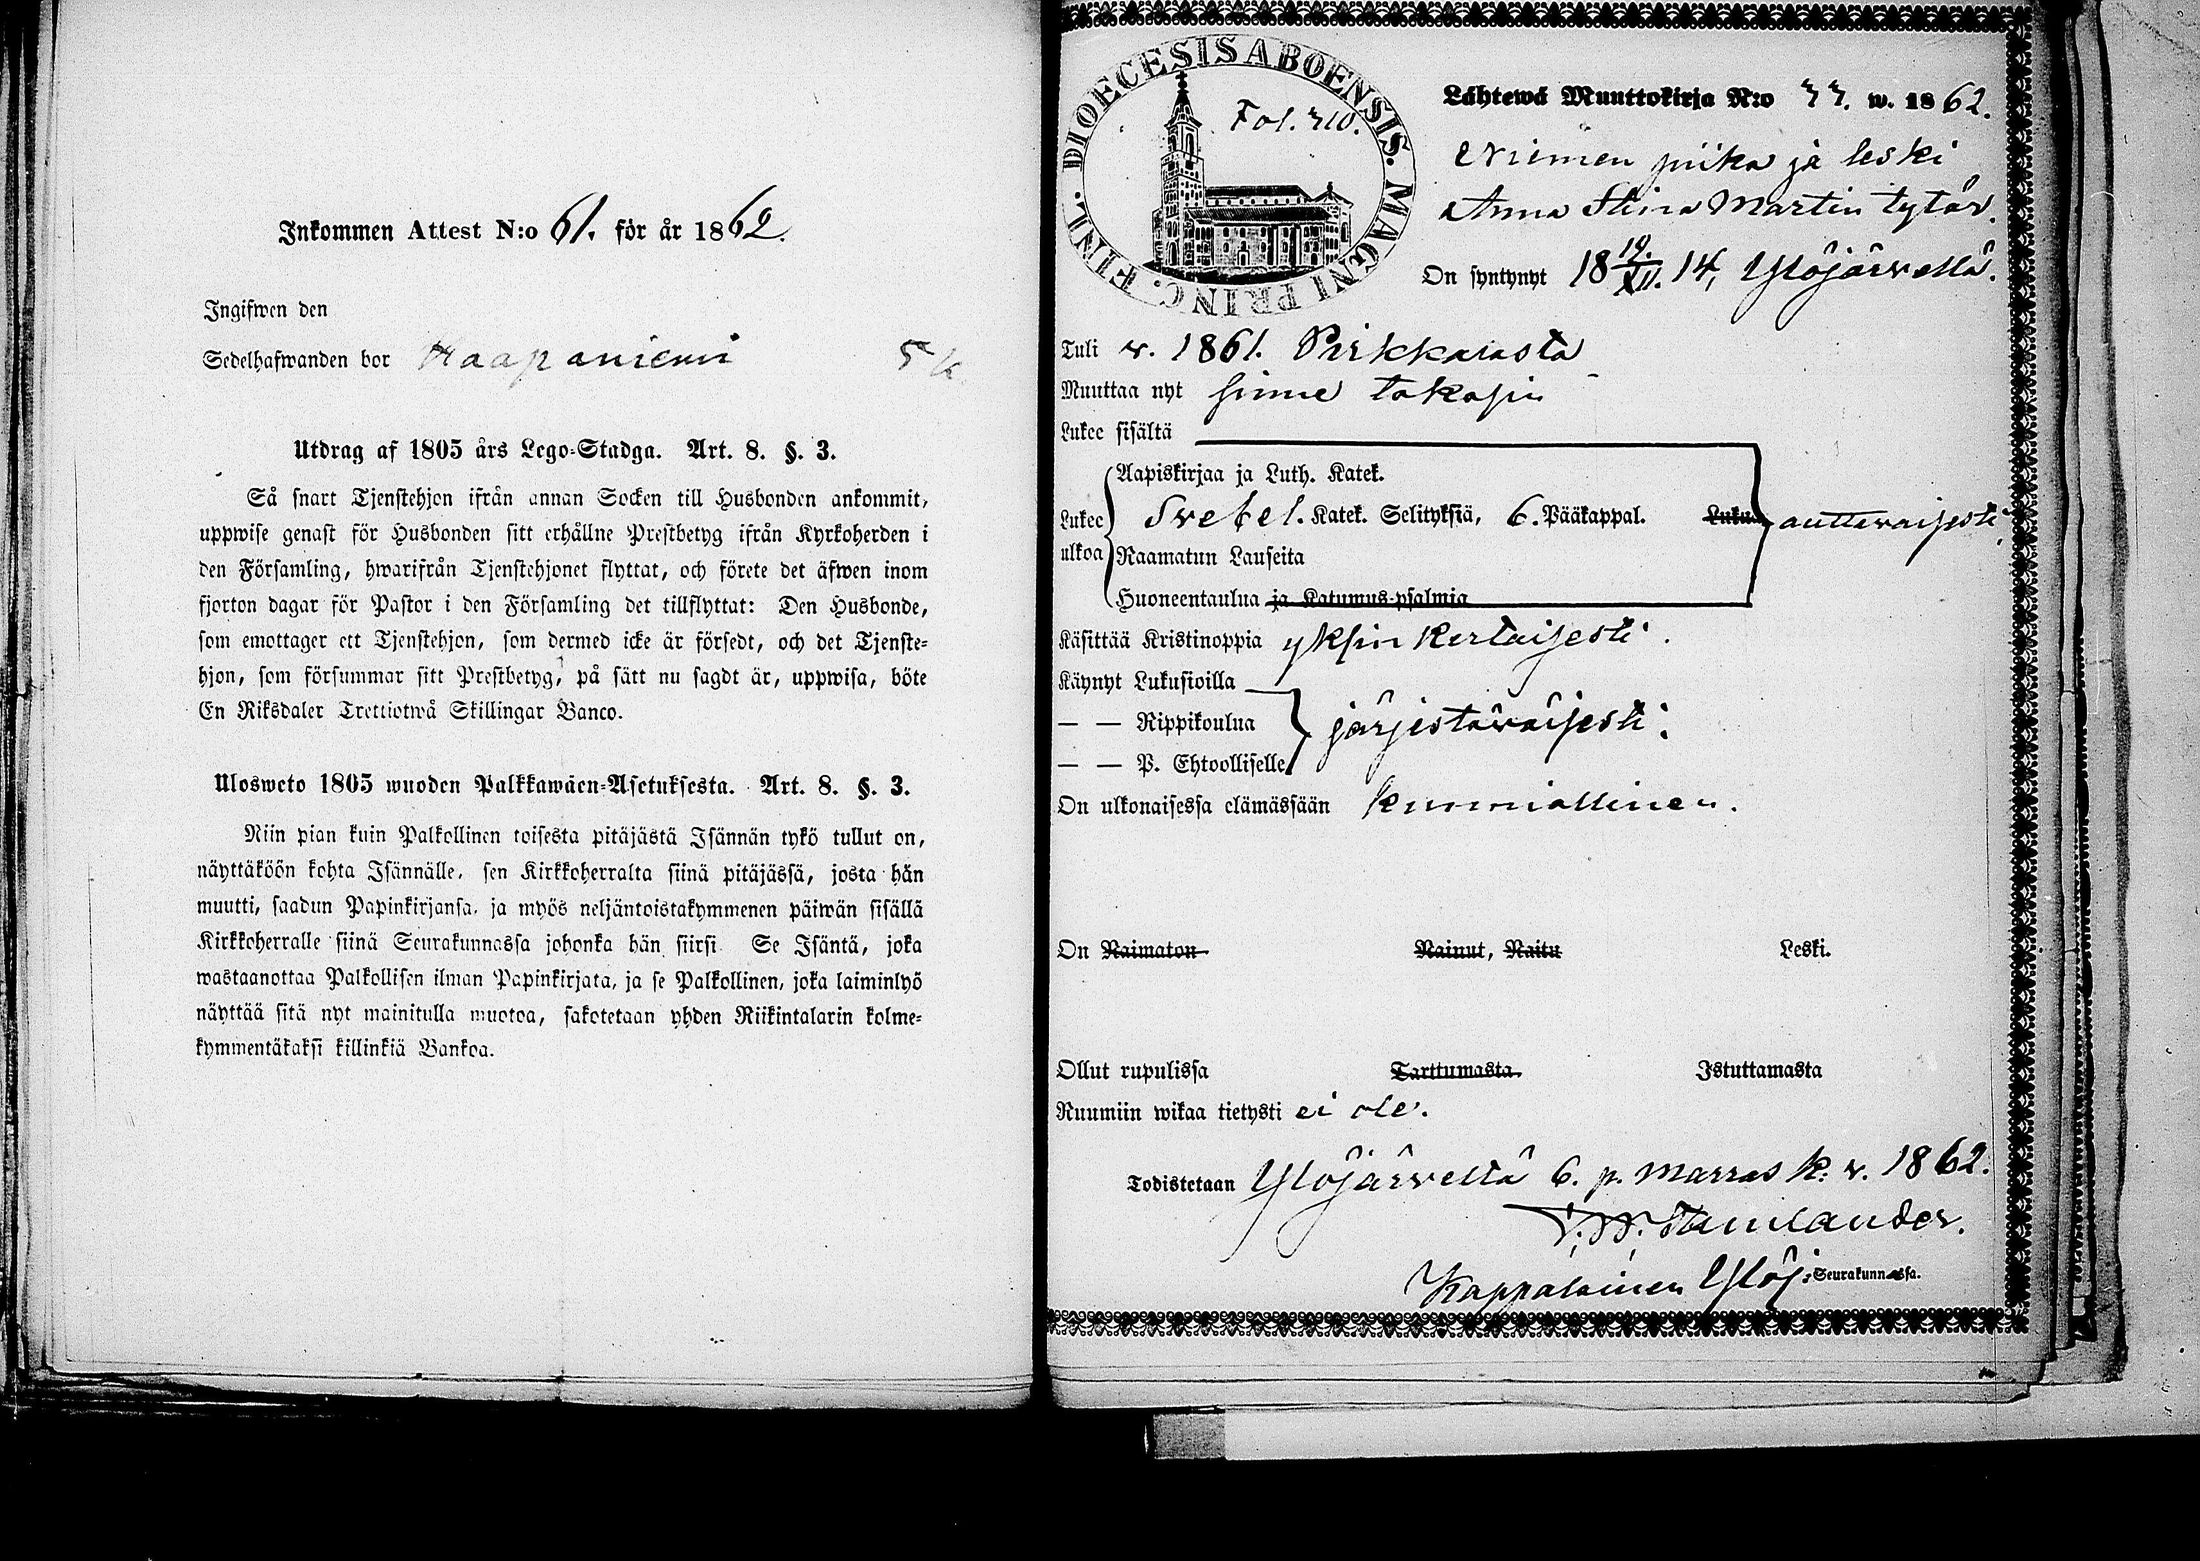 Inkommen Attest N:o 61. för år 1862.
Ingifwen den
Sedelhafwanden bor Haapaniemi 5 k
Utdrag af 1805 års Lego-Stadga. Art. 8. §. 3.
Så snart Tjenstehjon ifrån annan Socken till Husbonden ankommit,
uppwise genast för Husbonden sitt erhållne Prestbetyg ifrån Kyrkoherden i
den Församling, hwarifrån Tjenstehjonet flyttat, och förete det äfwen inom
fjorton dagar för Pastor i den Församling det tillflyttat: Den Husbonde,
som emottager ett Tjenstehjon, som dermed icke är försedt, och det Tjenste-
hjon, som försummar sitt Prestbetyg, på sätt nu sagdt är, uppwisa, böte
En Riksdaler Trettiotwå Skillingar Banco.
Ulosweto 1805 wuoden Palkkawäen-Asetuksesta. Art. 8. §. 3.
Niin pian kuin Palkollinen toisesta pitäjästä Isännän tykö tullut on,
näyttäköön kohta Isännälle, sen Kirkkoherralta siinä pitäjässä, josta hän
muutti, saadun Papinkirjansa, ja myös neljäntoistakymmenen päiwän sisällä
Kirkkoherralle siinä Seurakunnassa johonka hän siirsi. Se Isäntä, joka
wastaanottaa Palkollisen ilman Papinkirjata, ja se Palkollinen, joka laiminlyö
näyttää sitä nyt mainitulla muotoa, sakotetaan yhden Riikintalarin kolme-
kymmentäkaksi killinkiä Bankoa.
DIOECESIS ABOENSIS. MAGNI PRINC. FINL.
Fol. 710.
Lähtewä Muuttokirja N:o 77. w. 1862.
Niemen piika ja leski
Anna Stina Martin tytär.
On syntynyt 18 19/XII. 14, Ylöjärvellä.
Tuli v. 1861. Pirkkalasta
Muuttaa nyt sinne takasin
Lukee sisältä
Aapiskirjaa ja Luth. Katek.
Lukee Svebel. Katek. Selityksiä, 6. Pääkappal. Lukua auttavaisesti
ulkoa Raamatun Lauseita
Huoneentaulua ja Katumus-psalmia
Käsittää Kristinoppia yksinkertaisesti.
Käynyt Lukusioilla
— — Rippikoulua järjestäväisesti.
— — P. Ehtoolliselle
On ulkonaisessa elämässään kunniallinen.
On Naimaton Nainut, Naitu Leski.
Ollut rupulissa Tarttumasta Istuttamasta
Ruumiin wikaa tietysti ei ole.
Todistetaan Ylöjärvellä 6. p. marrask. v. 1862.
Kappalainen Ylöj. Seurakunnassa.